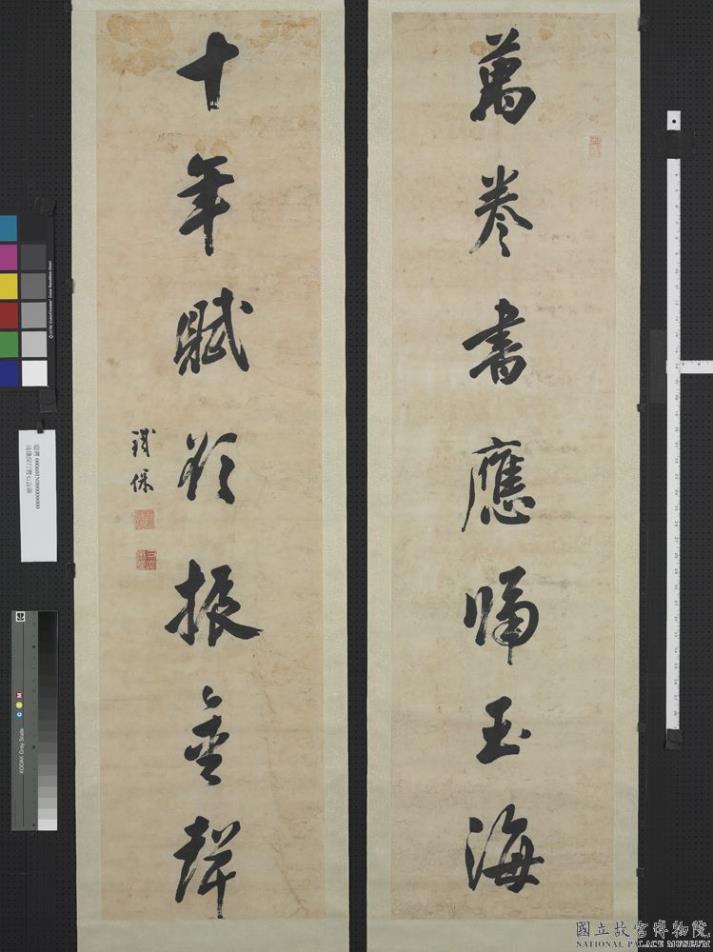 萬卷書應歸玉海
十年賦欲振金聲
鐵保
KODAK Gray Scale
國立故宮博物院
NATIONAL PALACE MUSEUM